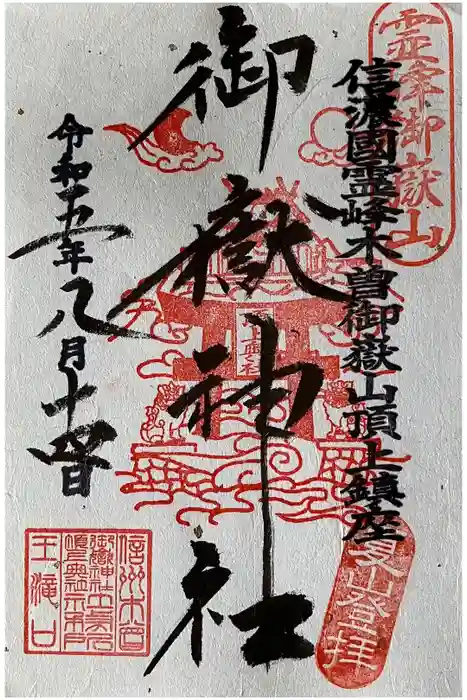 霊峯御嶽山
信濃國霊峰木曾御嶽山頂上鎮座
夏山登拝
御嶽神社
頂上奥社
令和五年八月十四日
信州木曽
王滝口